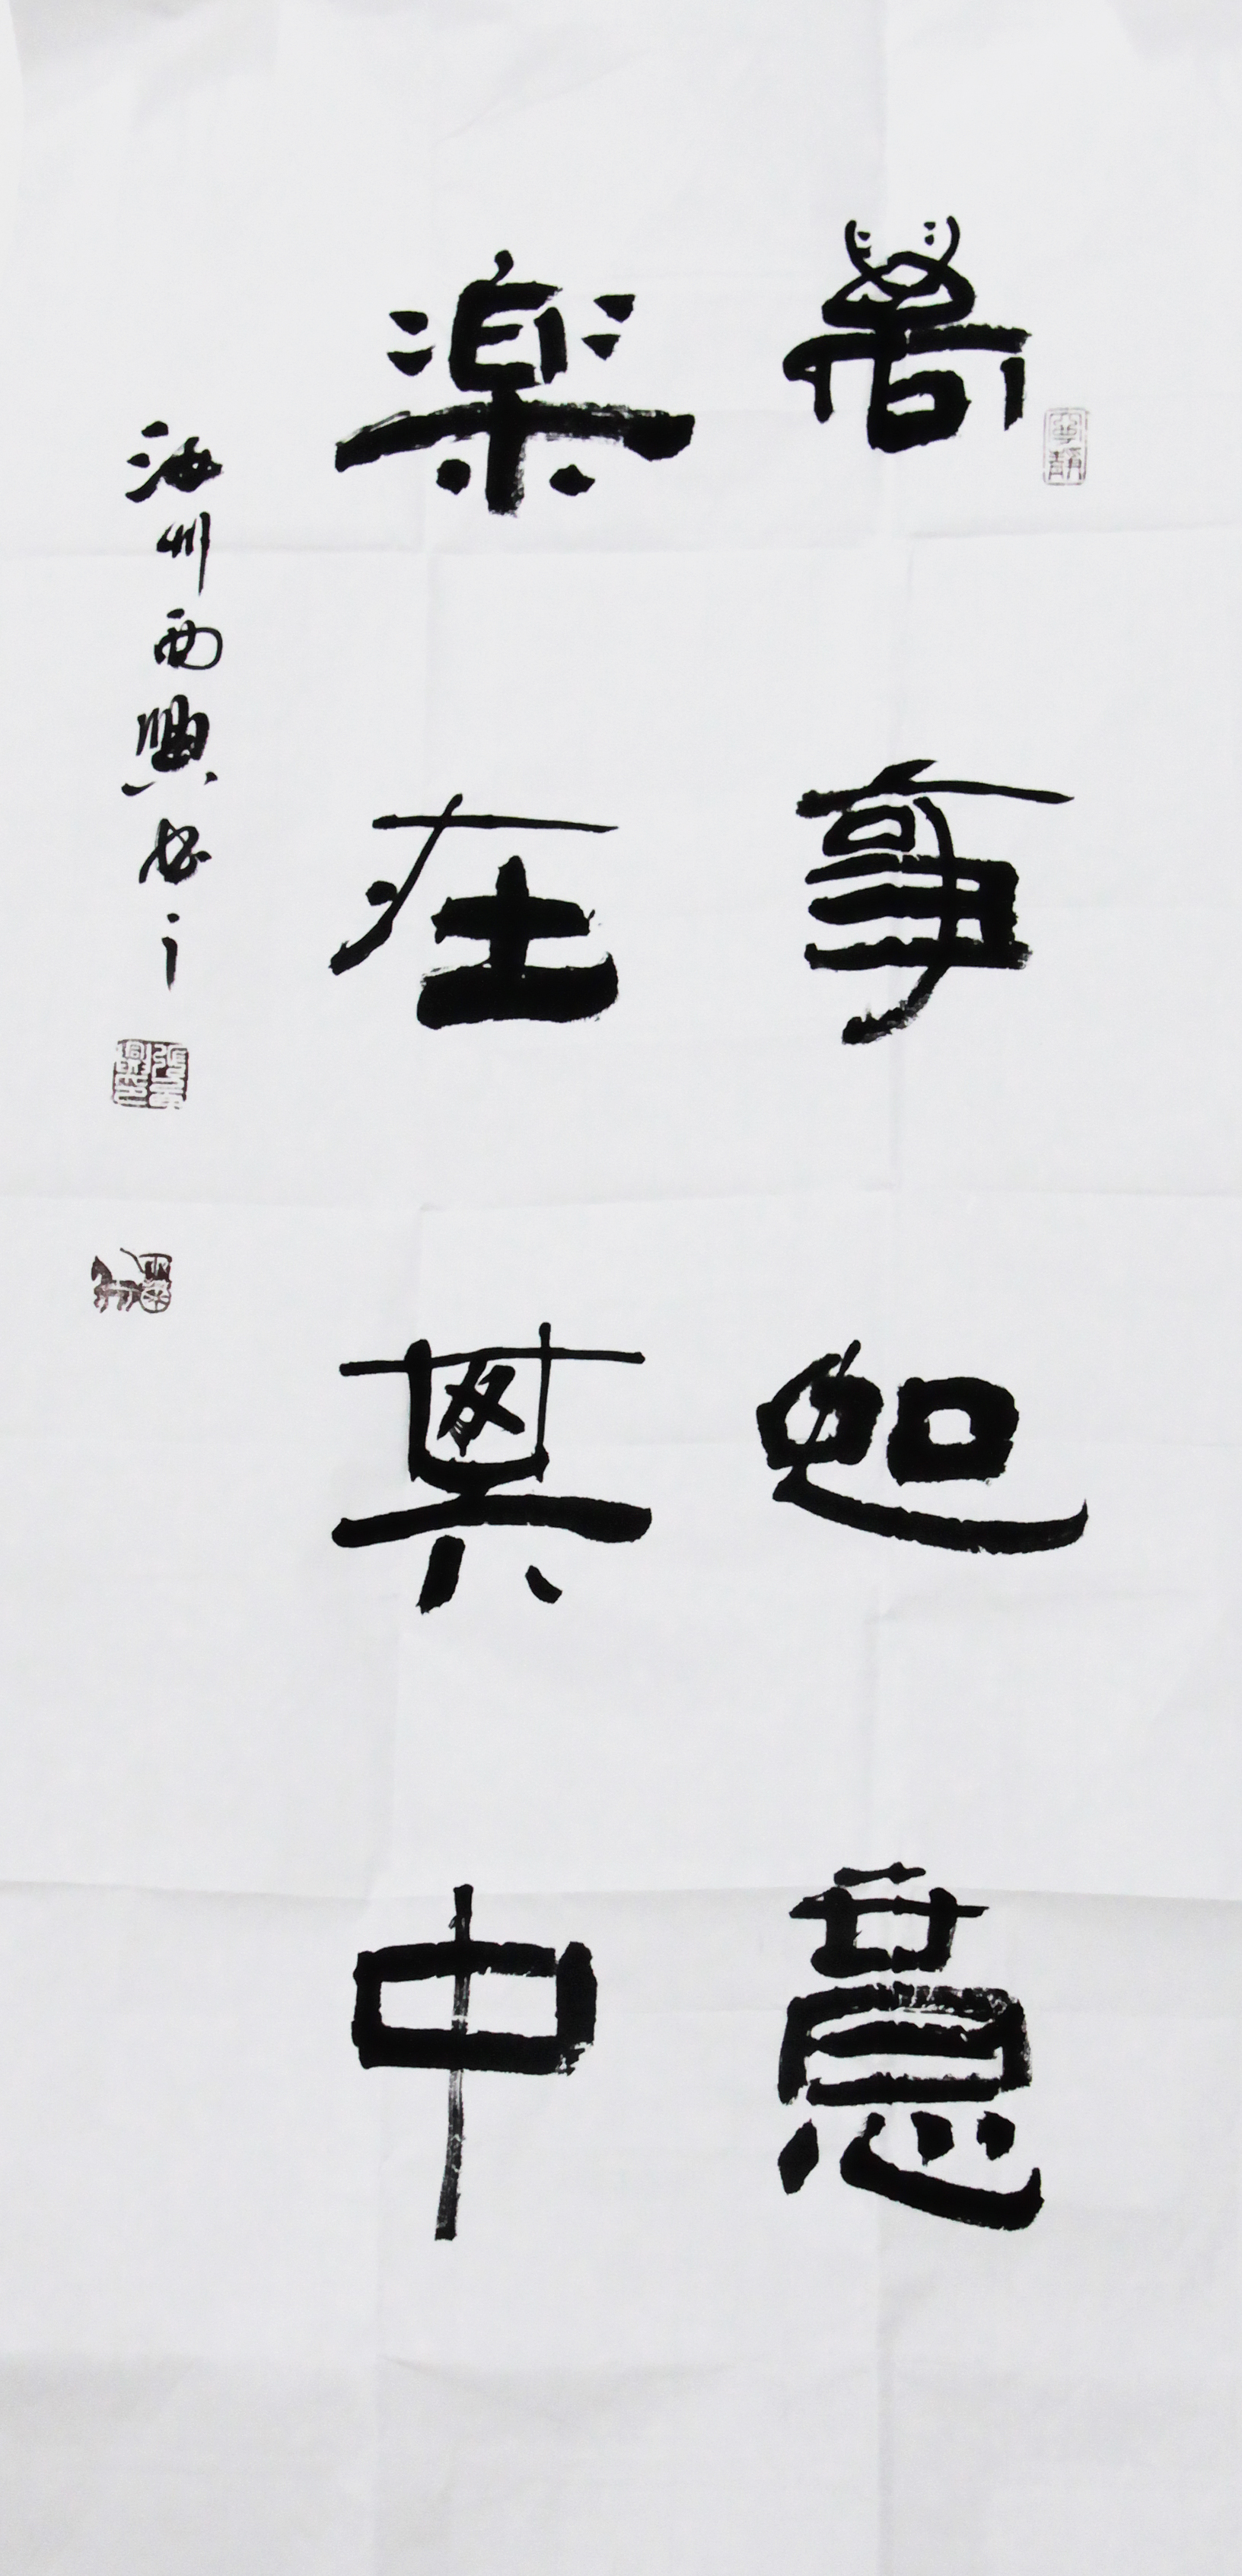 萬事如意
樂在其中
海州西興書之
寧靜